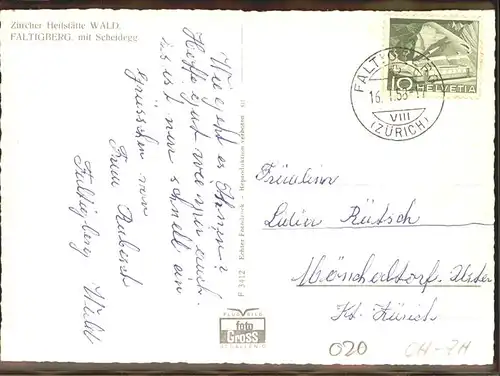 Zürcher Heilstätte WALD,
FALTIGBERG, mit Scheidegg
Wie geht es Ihnen?
Hoffe gut wie
es ist nun schnell an
Grüsschen von
Frau
Faltigberg Wald
F 3412 Echter Fotodruck - Reproduktion verboten
FLUGBILD
foto
Gross
ST. GALLEN
10
HELVETIA
FALTIGBERG
VIII
(ZÜRICH)
Fräulein
Rütsch
Mönchaltorf. Uster
Kt. Zürich
020
CH-ZH